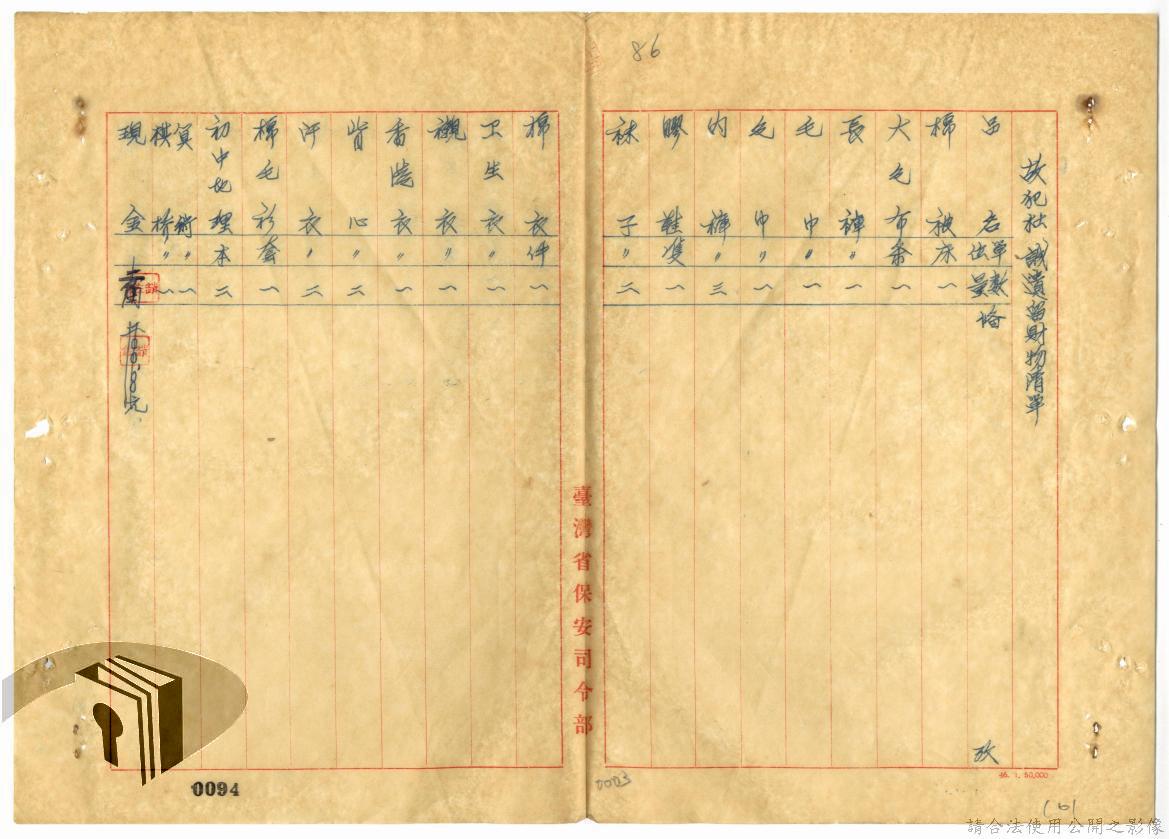 86
故犯杜誠遺留財物清單
品名 單位 數量 備 攷
棉被 床 一
大毛巾 条 一
長褲 〃 一
毛巾 〃 一
内褲 〃 三
膠鞋 雙 一
袜子 〃 二
臺灣省保安司令部
棉衣 件 一
卫生衣 〃 一
襯衣 〃 一
香港衣 〃 一
背心 〃 二
汗衣 〃 二
棉毛衫 套 一
初中地理 本 二
算術 〃 一
棋 〃 一
現金
0094
0003
46. 1. 50,000
(6)
請合法使用公開之影像